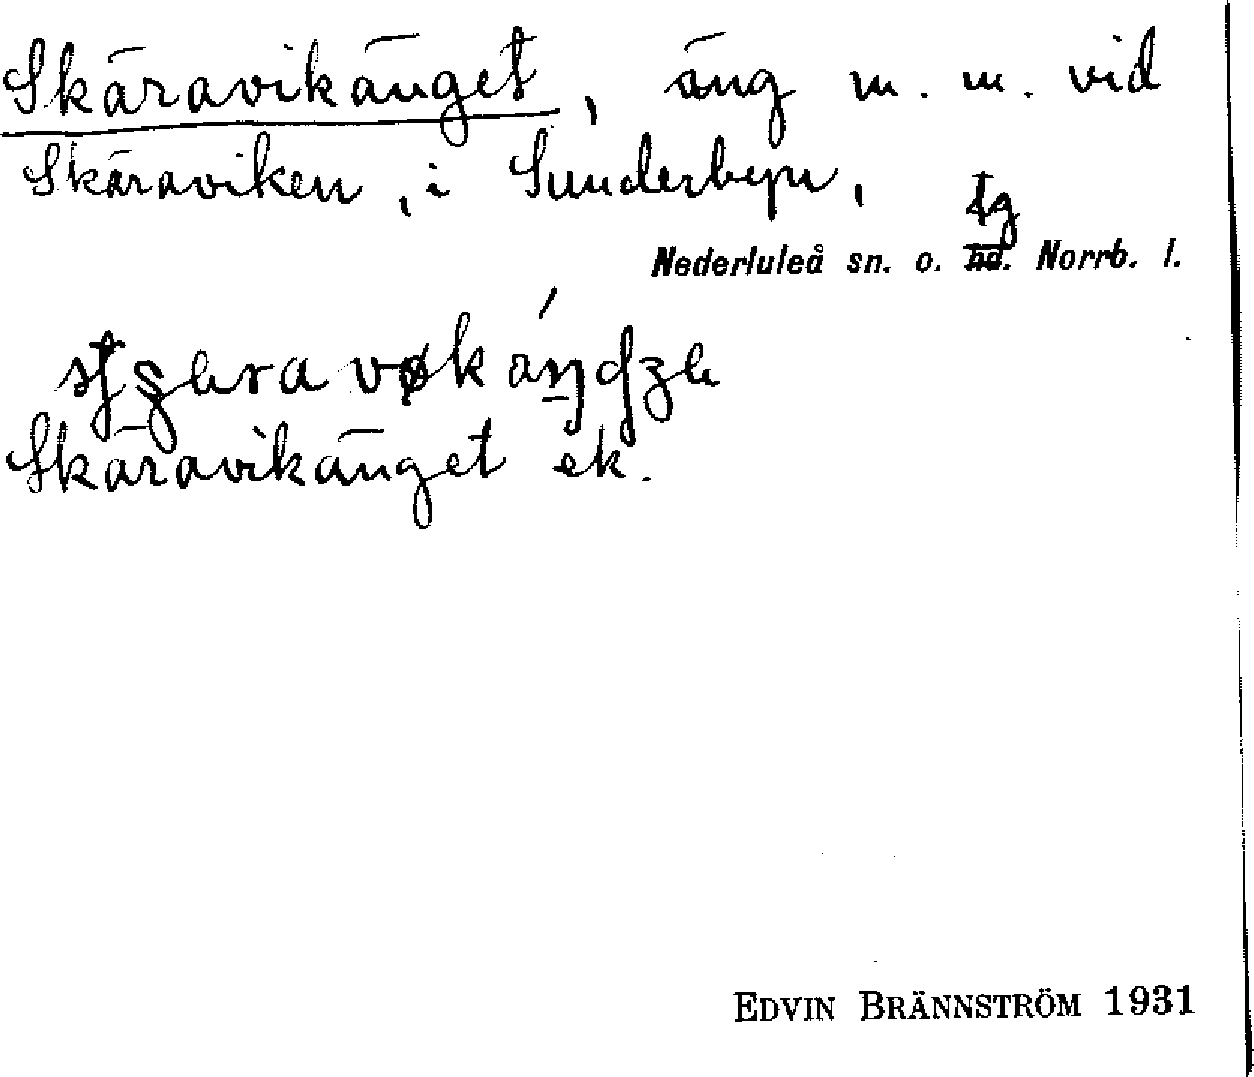 Skäravikänget, äng m. m. vid
Skäraviken, i Sunderbyn,
tg
Nederluleå sn. o. hd. Norrb. l.
Skäravikänget ek.
EDVIN BRÄNNSTRÖM 1931